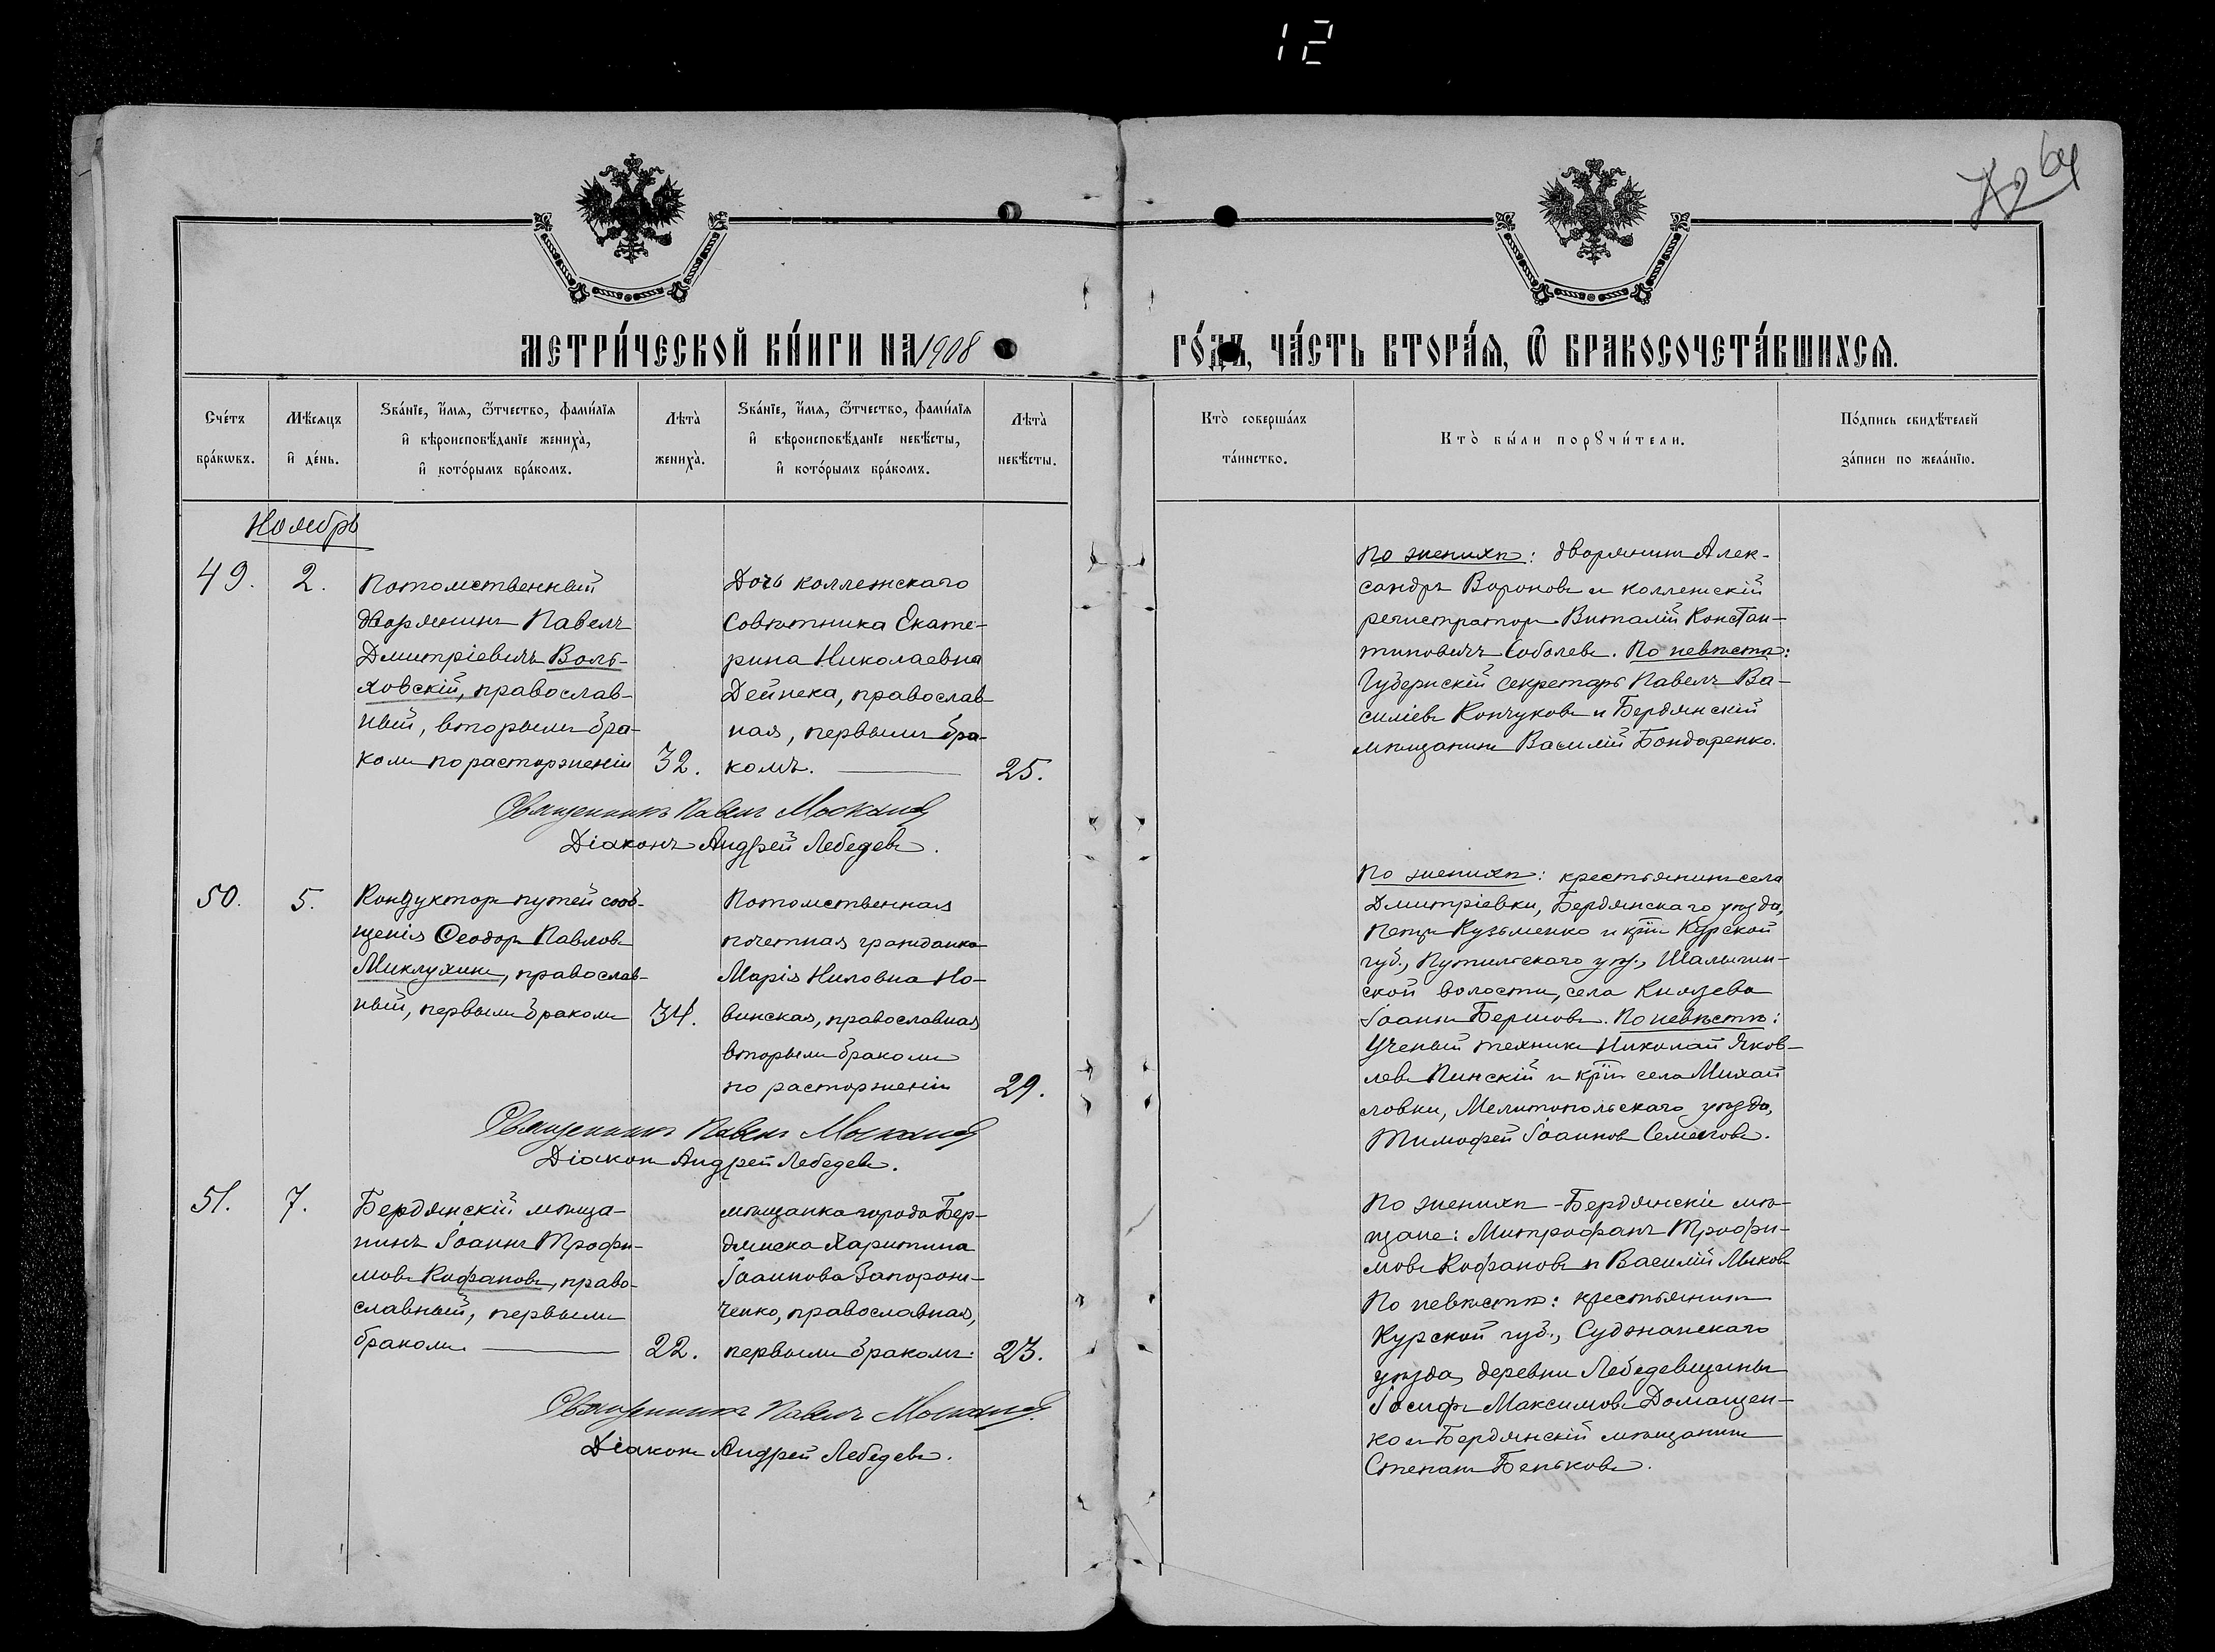 12
64
МЕТРИ́ЧЕСКОЙ КНИ́ГИ НА 1908
ГО́ДЪ, ЧА́СТЬ ВТОРА́Ѧ, Ѽ БРАКОСОЧЕТА́ВШИХСѦ.
Сче́тъ
бра́кѡвъ.
Мѣ́сѧцъ
и҆ де́нь.
Зва́нїе, и҆́мѧ, ѻ҆́тчество, фами́лїѧ
и҆ вѣроисповѣ́данїе жениха̀,
и҆ кото́рымъ бра́комъ.
Лѣта̀
жениха̀.
Зва́нїе, и҆́мѧ, ѻ҆́тчество, фами́лїѧ
и҆ вѣроисповѣ́данїе невѣ́сты,
и҆ кото́рымъ бра́комъ.
Лѣта̀
невѣ́сты.
Кто̀ соверша́лъ
та́инство.
Кто̀ бы́ли порꙋчи́тели.
По́дпись свидѣ́телей
за́писи по жела́нїю.
Ноябрь
49.
2.
Потомственный
дворянинъ Павелъ
Дмитріевичъ Воль-
ховскій, православ-
ный, вторымъ бра-
комъ по расторженіи
32.
Дочь коллежскаго
Совѣтника Екате-
рина Николаевна
Дейнека, православ-
ная, первымъ бра-
комъ.
25.
По женихѣ: дворянинъ Алек-
сандръ Вороновъ и коллежскій
регистраторъ Виталій Констан-
тиновичъ Соболевъ. По невѣстѣ:
Губернскій Секретарь Павелъ Ва-
силіевъ Кончуковъ и Бердянскій
мѣщанинъ Василій Бондаренко.
Священникъ Павелъ
Діаконъ Андрей Лебедевъ.
50.
5.
Кондукторъ путей сооб-
щенія Ѳеодоръ Павловъ
Миклухинъ, православ-
ный, первымъ бракомъ
34.
Потомственная
почетная гражданка
Марія Ниловна Но-
винская, православная
вторымъ бракомъ
по расторженіи
29.
По женихѣ: крестьянинъ села
Дмитріевки, Бердянскаго уѣзда,
Петръ Кузьменко и кр̃нъ Курской
губ., Путильскаго уѣз., Шалыгин-
ской волости, села Князева
Іоаннъ Бершовъ. По невѣстѣ:
Ученый техникъ Николай Яков-
левъ Пинскій и кр̃нъ села Михай
ловки, Мелитопольскаго уѣзда,
Тимофей Іоанновъ
Священникъ Павелъ
Діаконъ Андрей Лебедевъ.
51.
7.
Бердянскій мѣща-
нинъ Іоаннъ Трофи-
мовъ Кофановъ, право-
славный, первымъ
бракомъ.
22.
мѣщанка города Бер-
дянска Харитина
Іоаннова Запорож-
ченко, православная,
первымъ бракомъ.
23.
По женихѣ - Бердянскіе мѣ-
щане: Митрофанъ Трофи-
мовъ Кофановъ и Василій
По невѣстѣ: крестьянинъ
Курской губ., Суджанскаго
уѣзда, деревни Лебедевщины
Іосифъ Максимовъ Домащен-
ко и Бердянскій мѣщанинъ
Степанъ Беньковъ.
Священникъ Павелъ
Діаконъ Андрей Лебедевъ.